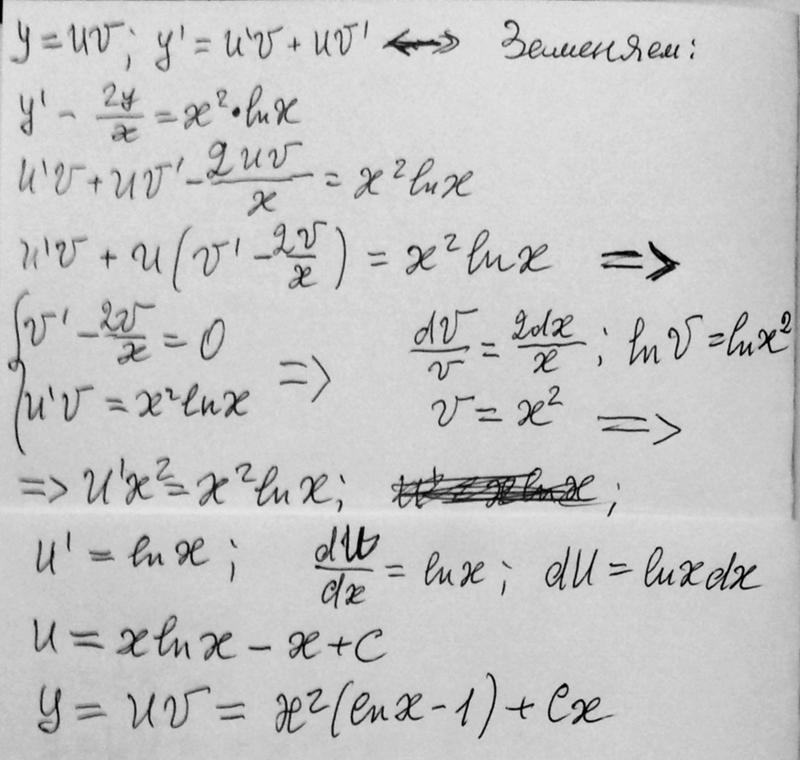 y = uv; y' = u'v + uv' <-> Земеняем:
y' - 2y/x = x²•lnx
u'v + uv' - 2uv/x = x²lnx
u'v + u(v' - 2v/x) = x²lnx =>
{v' - 2v/x = 0 dv/v = 2dx/x; lnv = lnx²
{u'v = x²lnx => v = x² =>
=> u'x² = x²lnx; ;
u' = lnx; du/dx = lnx; du = lnxdx
u = xlnx - x + C
y = uv = x²(lnx - 1) + Cx